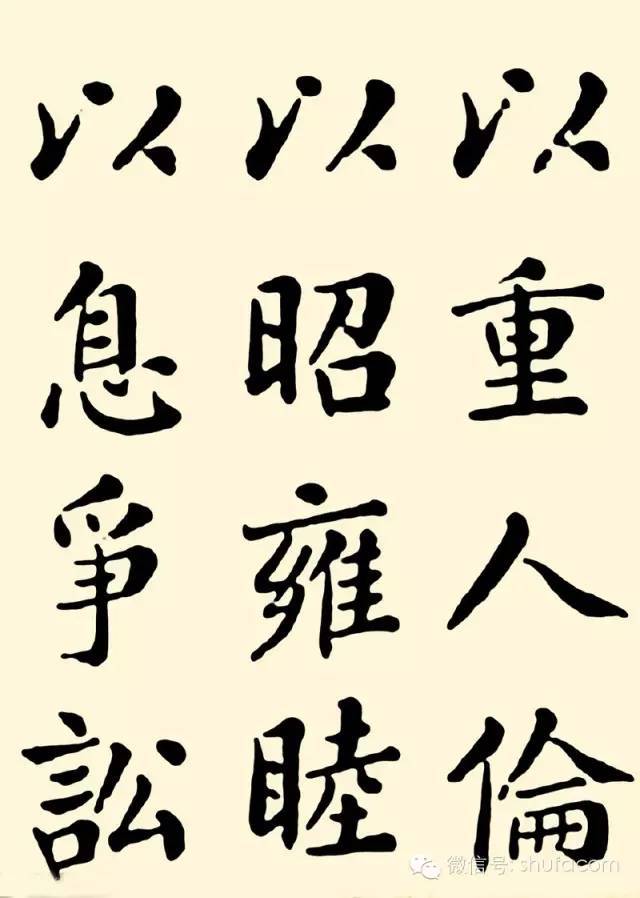 以重人倫
以昭雍睦
以息爭訟
微信号: shufacom